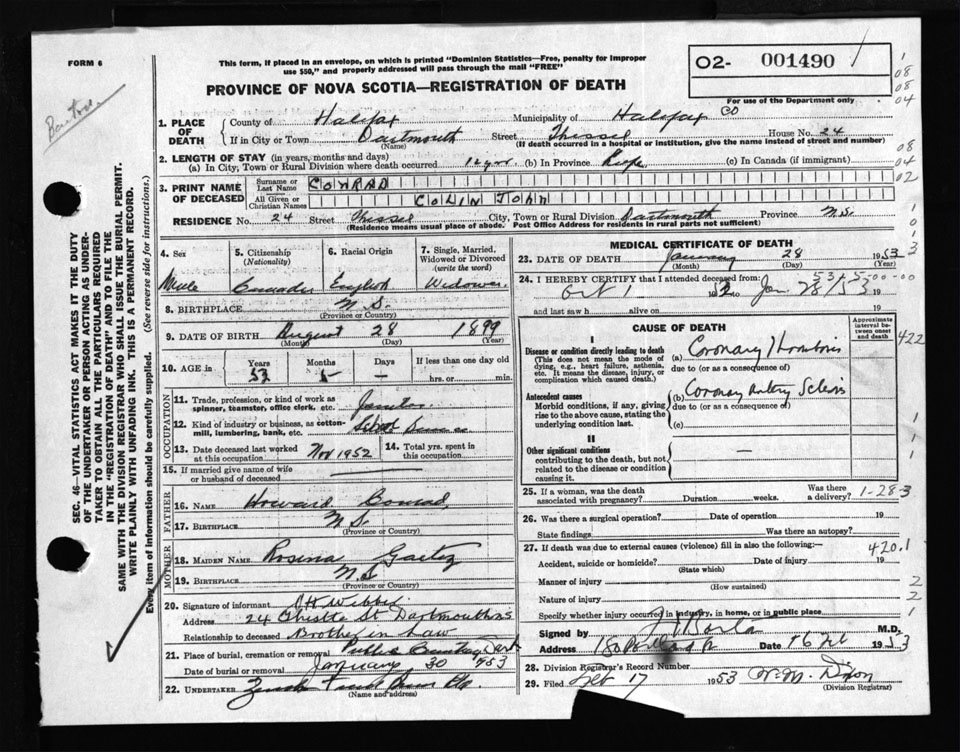 FORM 6
This form, if placed in an envelope, on which is printed "Dominion Statistics—Free, penalty for improper
use $50," and properly addressed will pass through the mail "FREE"
O2- 001490
For use of the Department only
PROVINCE OF NOVA SCOTIA—REGISTRATION OF DEATH
1. PLACE OF DEATH County of Halifax Municipality of Halifax Co
If in City or Town Dartmouth (Name) Street House No. 24
(If death occurred in a hospital or institution, give the name instead of street and number)
2. LENGTH OF STAY (in years, months and days)
(a) In City, Town or Rural Division where death occurred 12 yrs (b) In Province Life (c) In Canada (if immigrant)
3. PRINT NAME OF DECEASED Surname or Last Name CONRAD
All Given or Christian Names COLIN JOHN
RESIDENCE No. 24 Street City, Town or Rural Division Dartmouth Province N.S.
(Residence means usual place of abode. Post Office Address for residents in rural parts not sufficient)
4. Sex Male
5. Citizenship (Nationality)
6. Racial Origin English
7. Single, Married, Widowed or Divorced (write the word) Widower
8. BIRTHPLACE N.S.
(Province or Country)
9. DATE OF BIRTH August 28 1899
(Month) (Day) (Year)
10. AGE in Years 53 Months 5 Days — If less than one day old hrs. or min.
OCCUPATION
11. Trade, profession, or kind of work as spinner, teamster, office clerk, etc. Janitor
12. Kind of industry or business, as cotton-mill, lumbering, bank, etc. School
13. Date deceased last worked at this occupation Nov 1952
14. Total yrs. spent in this occupation
15. If married give name of wife or husband of deceased
FATHER
16. Name Howard Conrad
17. Birthplace N.S.
(Province or Country)
MOTHER
18. MAIDEN NAME Rosina Gaetz
19. BIRTHPLACE N.S
(Province or Country)
20. Signature of informant
Address 24 St Dartmouth N.S
Relationship to deceased Brother in Law
21. Place of burial, cremation or removal Public Cemetery Dart
Date of burial or removal January 30 1953
22. UNDERTAKER
(Name and address)
MEDICAL CERTIFICATE OF DEATH
23. DATE OF DEATH January 28 1953
(Month) (Day) (Year)
24. I HEREBY CERTIFY that I attended deceased from
Oct 1 1952 Jan 28/53 19
and last saw h alive on 19
CAUSE OF DEATH
Approximate interval between onset and death
I
Disease or condition directly leading to death
(This does not mean the mode of dying, e.g., heart failure, asthenia, etc. It means the disease, injury, or complication which caused death.)
(a) Coronary Thrombosis
due to (or as a consequence of)
Antecedent causes
Morbid conditions, if any, giving rise to the above cause, stating the underlying condition last.
(b) Coronary Artery Sclerosis
due to (or as a consequence of)
(c)
II
Other significant conditions
contributing to the death, but not related to the disease or condition causing it. —
25. If a woman, was the death associated with pregnancy? Duration weeks. Was there a delivery? 1-28-3
26. Was there a surgical operation? Date of operation 19
State findings Was there an autopsy?
27. If death was due to external causes (violence) fill in also the following:— 420.1
Accident, suicide or homicide? Date of injury 19
(State which)
Manner of injury
(How sustained)
Nature of injury
Specify whether injury occurred in industry, in home, or in public place
Signed by M.D.
Address Date 16 Feb 1953
28. Division Registrar's Record Number
29. Filed Feb 17 1953
(Division Registrar)
SEC. 46—VITAL STATISTICS ACT MAKES IT THE DUTY
OF THE UNDERTAKER OR PERSON ACTING AS UNDER-
TAKER TO OBTAIN ALL THE PARTICULARS REQUIRED
IN THE "REGISTRATION OF DEATH" AND TO FILE THE
SAME WITH THE DIVISION REGISTRAR WHO SHALL ISSUE THE BURIAL PERMIT.
WRITE PLAINLY WITH UNFADING INK. THIS IS A PERMANENT RECORD.
Every item of information should be carefully supplied. (See reverse side for instructions.)